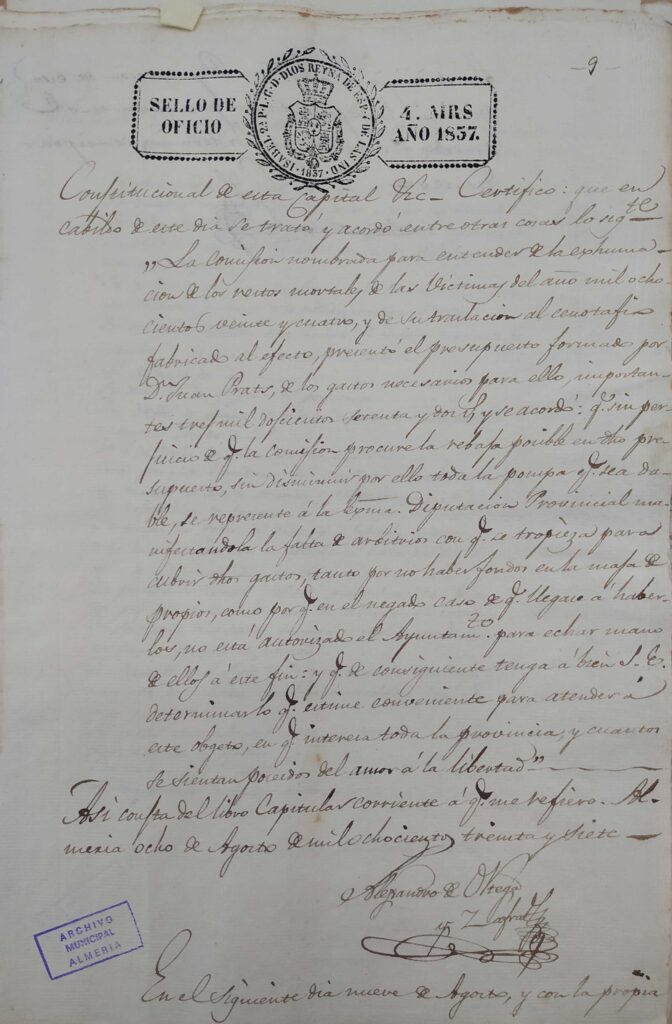 -9-
SELLO DE OFICIO
ISABEL 2ª P. L. G. D. DIOS REYNA DE ESP. Y DE LAS IND. 1837
4. MRS AÑO 1837.
Constitucional de esta Capital &c - Certifico: que en
cabildo de este dia se trató y acordó entre otras cosas lo sigte
„La Comision nombrada para entender de la exhuma-
cion de los restos mortales de las Victimas del año mil ocho-
cientos veinte y cuatro, y de su traslacion al cenotafio
fabricado al efecto, presentó el presupuesto formado por
Dn. Juan Prats, de los gastos necesarios para ello, importan-
tes tres mil doscientos setenta y dos rs, y se acordó: q. sin per-
juicio de q. la comision procure la rebaja posible en dho pre-
supuesto, sin disminuir por ello toda la pompa q. sea da-
ble, se represente á la Exma. Diputacion Provincial ma-
nifestandola la falta de arbitrios con q. se tropieza para
cubrir dhos gastos, tanto por no haber fondos en la masa de
propios, como por q. en el negado caso de q. llegase a haber-
los, no está autorizado el Ayuntamto. para echar mano
de ellos á este fin: y q. de consiguiente tenga á bien S. E.
determinar lo q. estime conveniente para atender á
este objeto, en q. interesa toda la provincia, y cuantos
se sientan poseidos del amor á la libertad"
Asi consta del libro Capitular corriente á q. me refiero. Al-
meria ocho de Agosto de mil ochocientos treinta y siete -
Alejandro de Ortega
y Zafra
ARCHIVO
MUNICIPAL
ALMERIA
En el siguiente dia nueve de Agosto, y con la propia